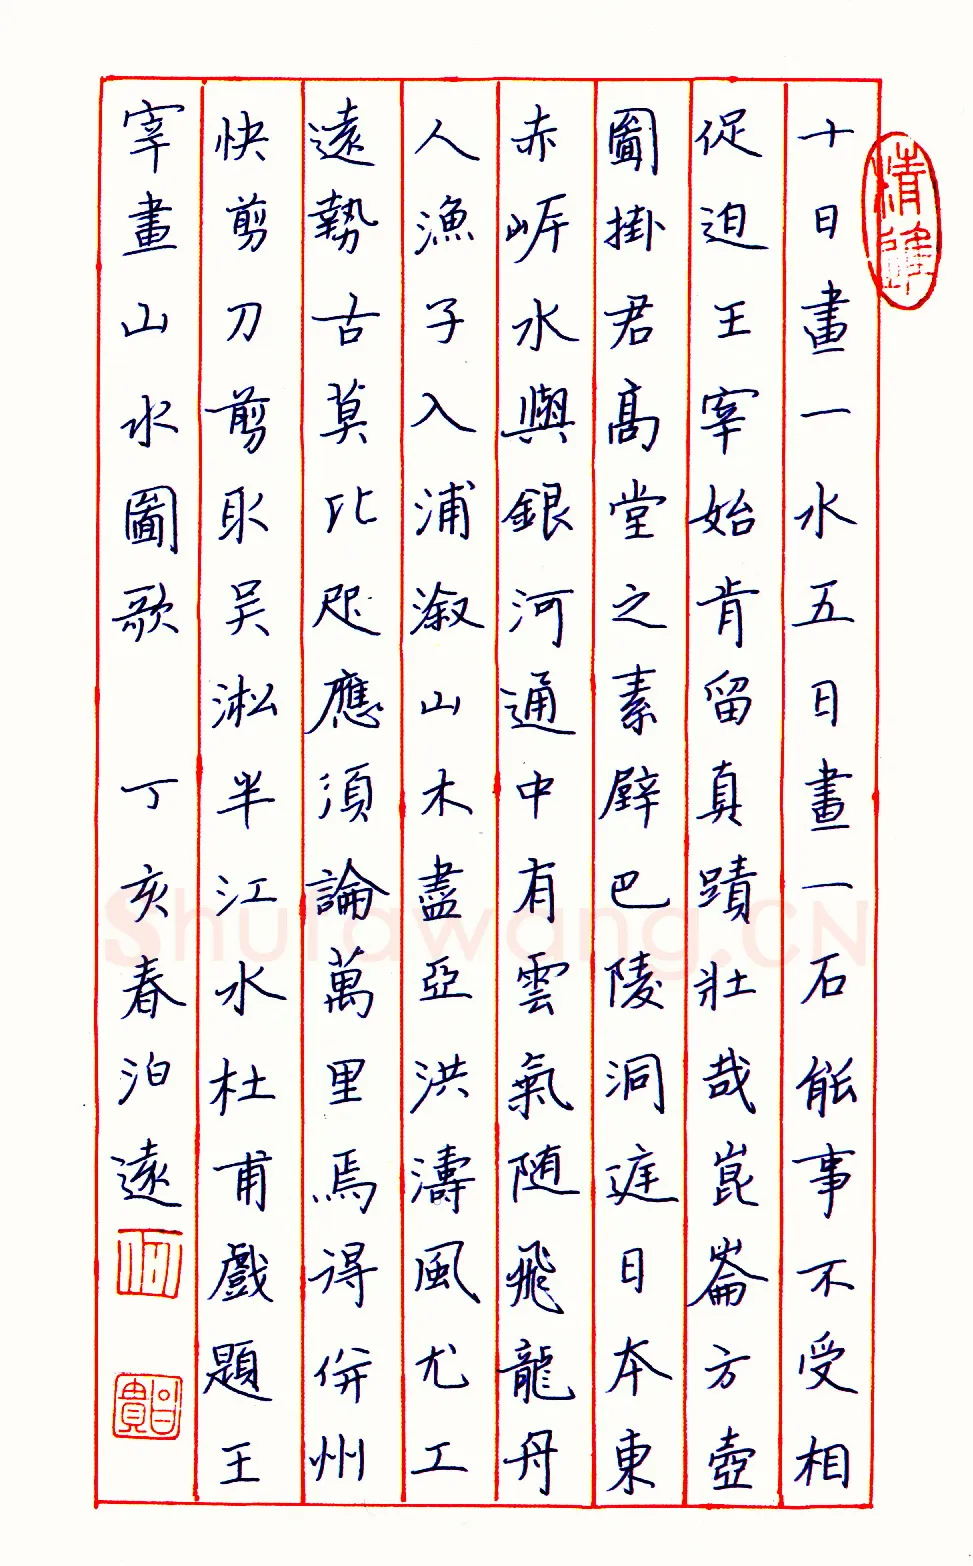 十日畫一水五日畫一石能事不受相
促迫王宰始肯留真蹟壯哉崑崙方壺
圖掛君高堂之素壁巴陵洞庭日本東
赤岸水與銀河通中有雲氣随飛龍舟
人漁子入浦溆山木盡亞洪濤風尤工
遠勢古莫比咫應須論萬里焉得併州
快剪刀剪取吴淞半江水杜甫戲題王
宰畫山水圖歌 丁亥春泊遠
Shufawang.CN